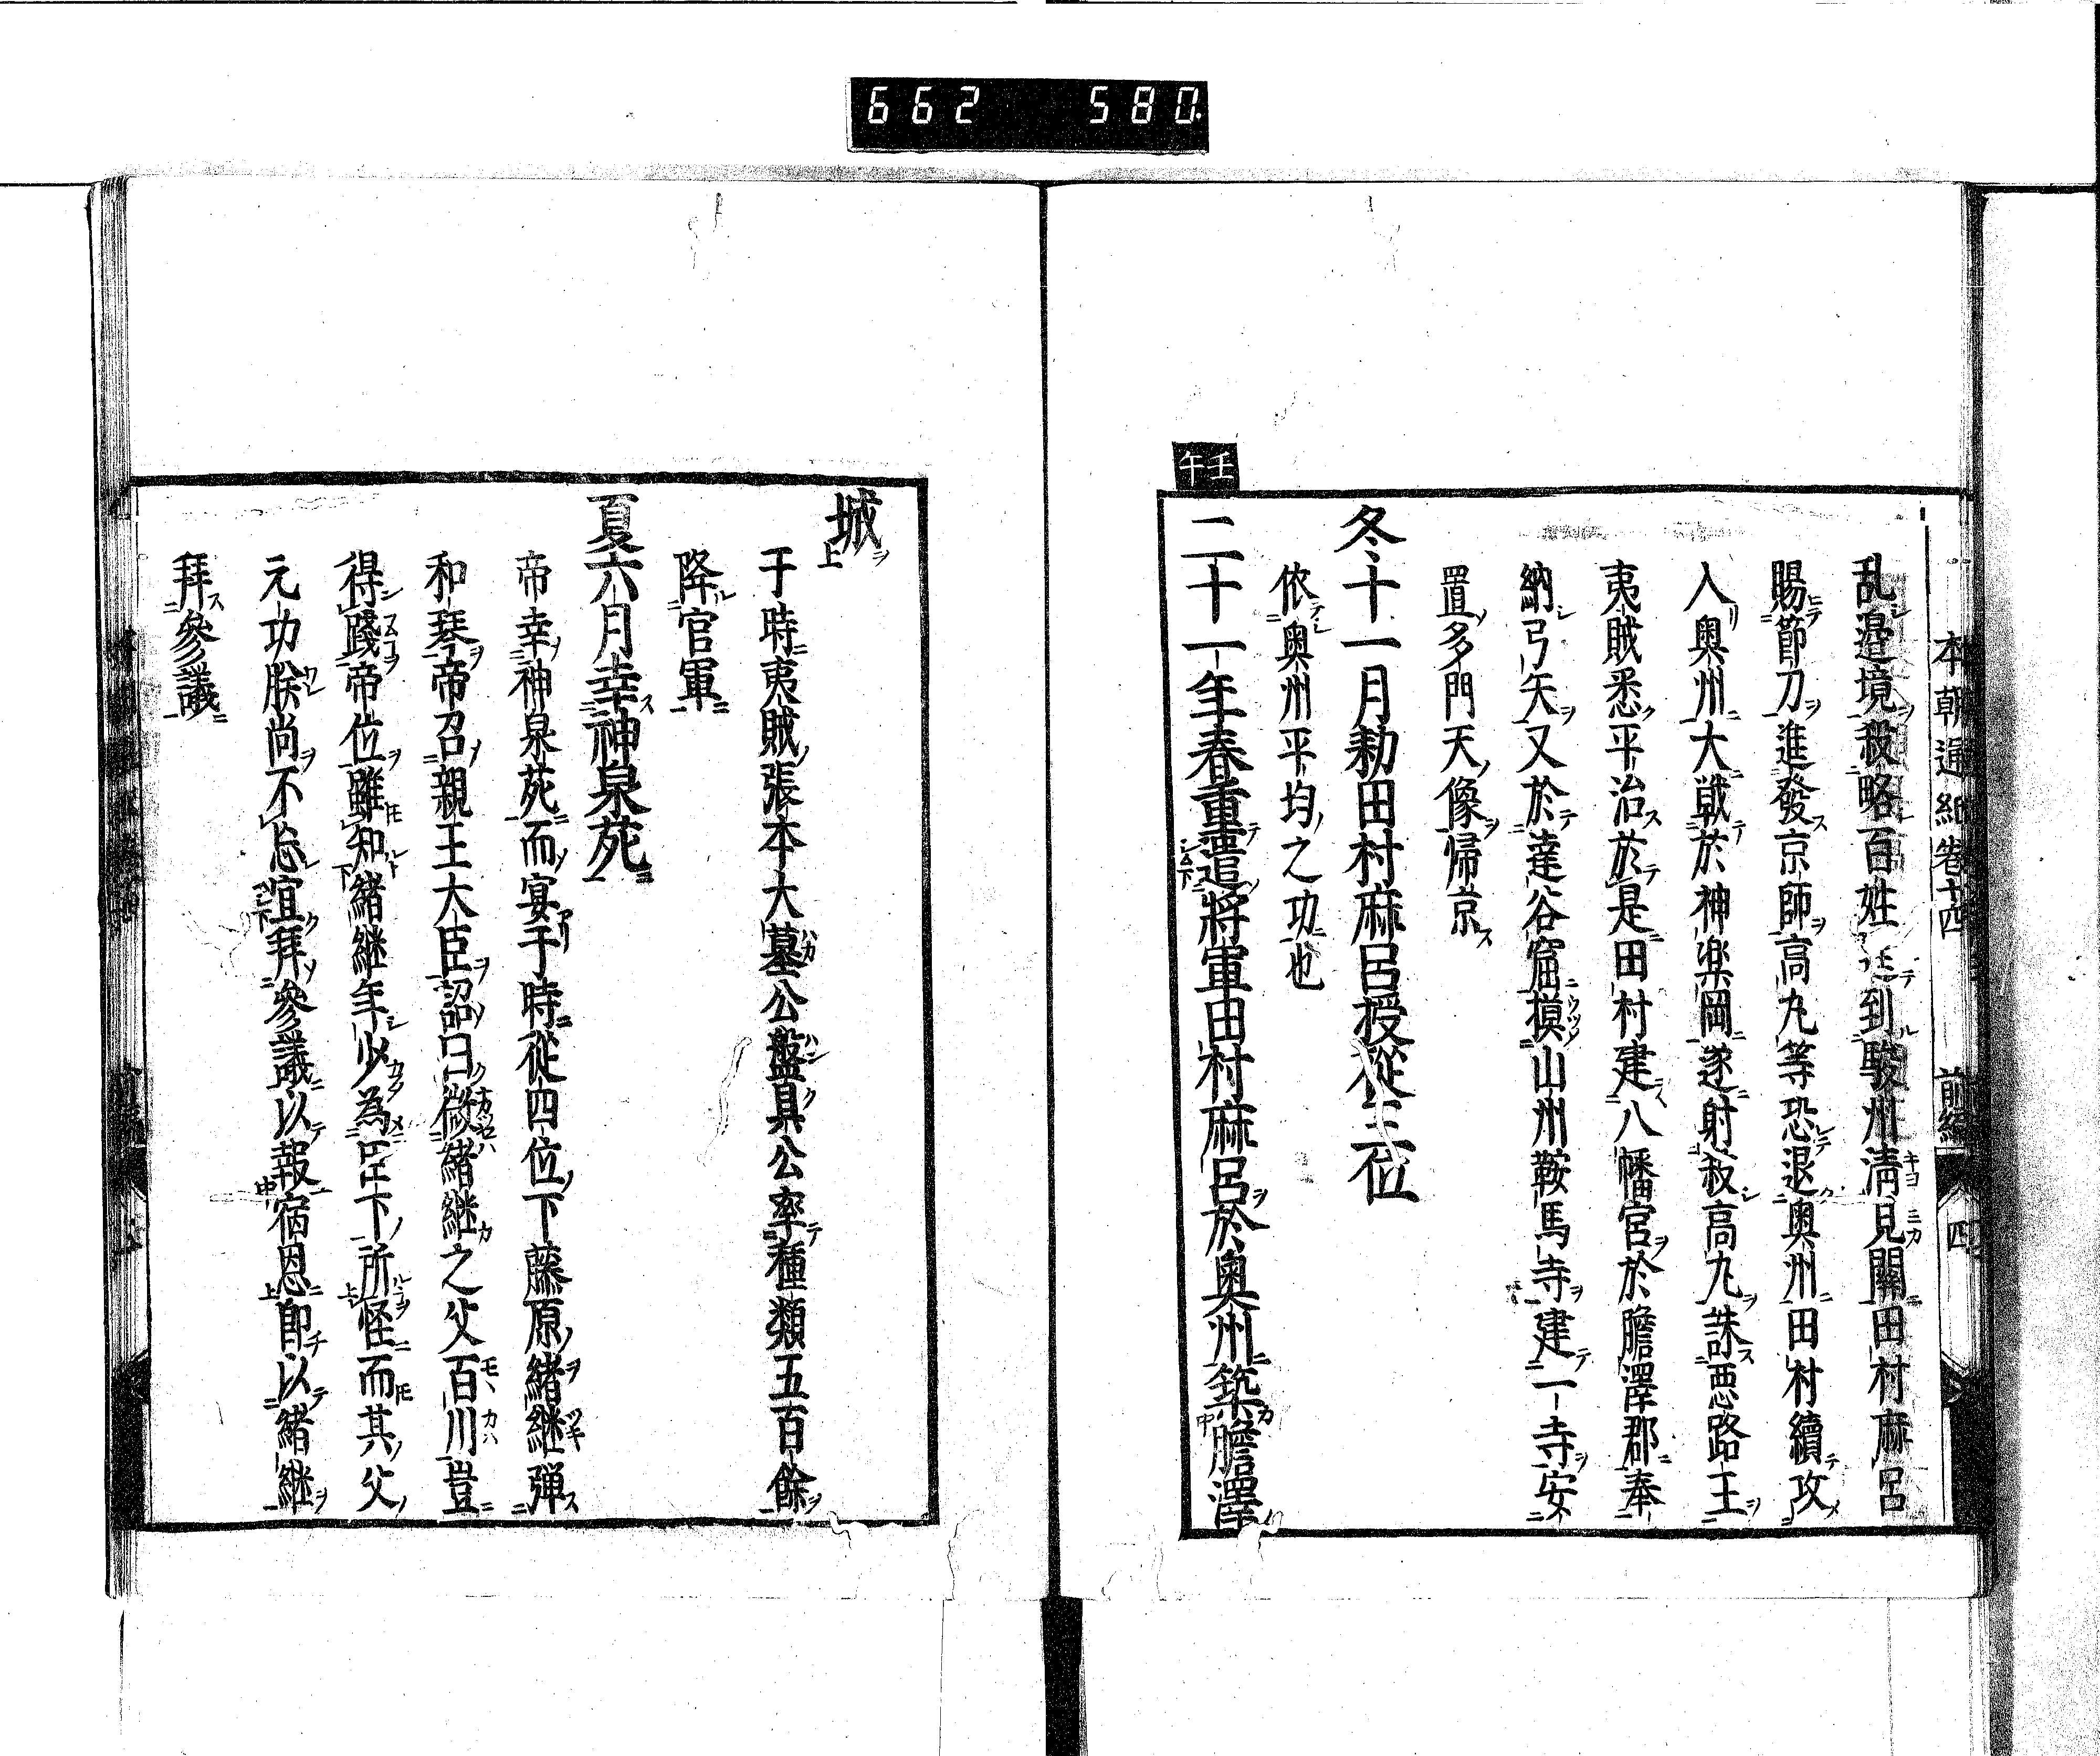 662 580
本朝通紀卷十四 前編 四
乱邉境殺略百姓 到駿州淸見關田村麻呂
賜節刀進發京師高丸等恐退奥州田村續攻
入奥州大戦於神楽岡遂射殺高丸誅悪路王
夷賊悉平治於是田村建八幡宮於膽澤郡奉
納弓矢又於達谷窟摸山州鞍馬寺建一寺安
置多門天像帰京
冬十一月勅田村麻呂授從三位
依奥州平均之功也
壬午
二十一年春重遣將軍田村麻呂於奥州築膽澤
城
于時夷賊張本大墓公盤具公率種類五百餘
降官軍
夏六月幸神泉苑
帝幸神泉苑而宴于時從四位下藤原緒継弾
和琴帝召親王大臣詔曰微緒継之父百川豈
得踐帝位雖知緒継年少為臣下所怪而其父
元功朕尚不忘宜拜參議以報宿恩即以緒継
拜參議